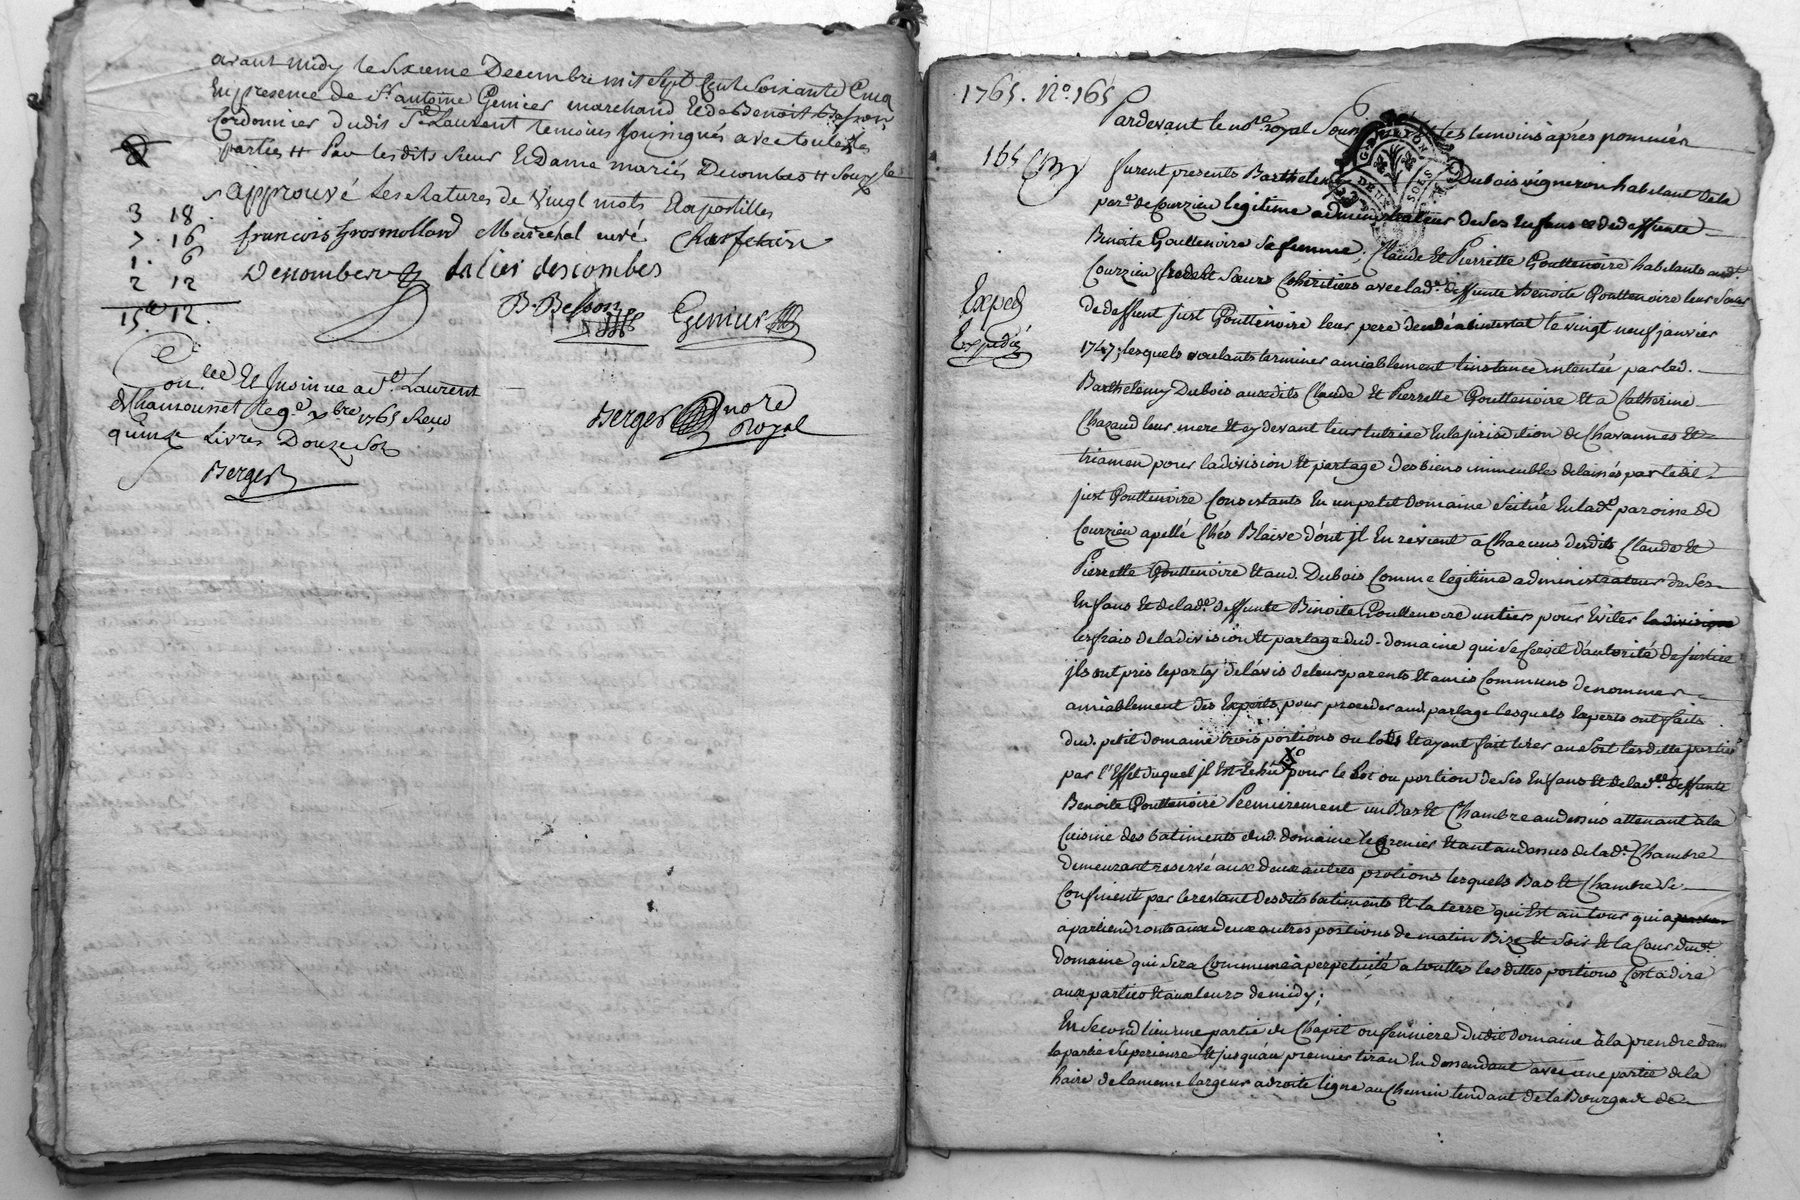 avant midy le Sixieme Decembre mil Sept Cent Soixante Cinq
En presence de Sr. antoine Genier marchand Et de Benoit Besson
Cordonnier dudit St. Laurent temoins Soussignés avec toutes les
parties # Par lesdits sieur Et dame mariés Decombes #
approuvé Les Ratures de Vingt mots Et apostilles
3 18.
7. 16
1. 6
2 12
15 12.
françois Grosmollard Marechal curé
Denomber Salier descombes
B. Besson Genier
Con.lée Et Insinué a St. Laurent
de Chamousset Reçu
quinze Livres Douze Sols
Berger
Berger nore
Royal
1765. No. 165
165
Exped
Expedié
Pardevant le nore. royal Sous les temoins après nommés
furent presents Barthelemy Dubois vigneron habitant de la
parse. de Courzieu legitime administrateur de Ses Enfans & de deffunte
Benoite Gouttenoire Sa femme, Claude Et Pierrette Gouttenoire habitants audt.
Courzieu frere Et Sœur Coheritiers avec lade. deffunte Benoite Gouttenoire leur Sœur
de deffunt just Gouttenoire leur pere decedé abintestat le vingt neuf janvier
1747; lesquels voulants terminer amiablement l'instance intentée par led.
Barthelemy Dubois auxdits Claude Et Pierrette Gouttenoire Et a Catherine
Chazaud leur mere Et cy devant leur tutrice En la jurisdiction de Chavannes Et
triamen pour la division Et partage des biens immeuble delaissés par ledit
just Gouttenoire Consistants En un petit domaine Scitué En lade. paroisse de
Courzieu apellé Chés Blaise dont jl En revient a Chacuns desdits Claude Et
Pierrette Gouttenoire Et aud. Dubois Comme legitime administrateur de Ses
Enfans Et de lade. deffunte Benoite Gouttenoire un tiers pour Eviter la division
les frais de la division Et partage dud. domaine qui Se feroit d'autorité de justice
jls ont pris le party de l'avis de leurs parents Et amis Communs de nommer
amiablement des Experts, pour proceder aud. partage lesquels Experts ont faits
dud. petit domaine trois portions ou lots Et ayant fait tirer au Sort lesdittes parties
par l'Effet duquel jl Est Echu pour le Lot ou portion de Ses Enfans Et de lade. deffunte
Benoite Gouttenoire Premierement un Bas Et Chambre au dessus attenant à la
Cuisine des batiments dud. domaine le Grenier Etant au dessus de lade. Chambre
demeurant reservé aux deux autres protions lesquels Bas Et Chambre Se
Confinent par le restant desdits batiments Et la terre qui Est au tour qui
apartiendront aux deux autres portions de matin Bize Et Soir Et la Cour dudt.
domaine qui Sera Commune à perpetuité a touttes les dittes portions C'est a dire
aux parties Et aux leurs de midy;
En Second lieu une partie de Chapit ou feniere dudit domaine à la prendre dans
la partie Superieure Et jusqu'au premier tiran En dessendant avec une partie de la
haire de la meme largeur a droite ligne au Chemin tendant de la Bourgade de